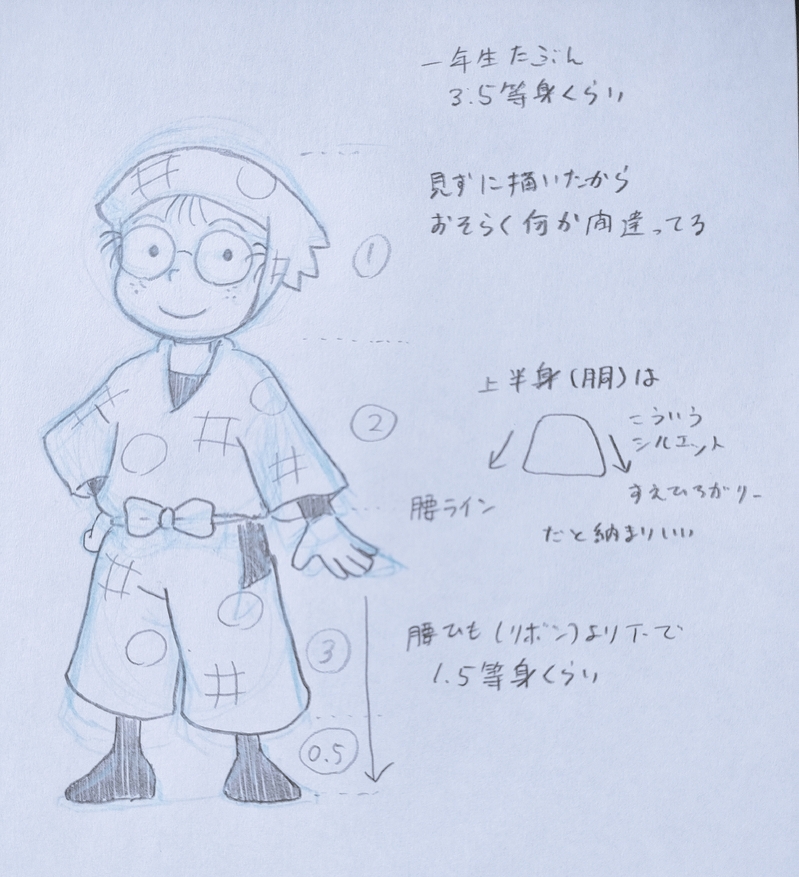 一年生たぶん
3.5等身くらい
見ずに描いたから
おそらく何か間違ってる
①
上半身(胴)は
こういう
シルエット
②
すえひろがりー
腰ライン
だと納まりいい
腰ひも(リボン)より下で
③
1.5等身くらい
0.5